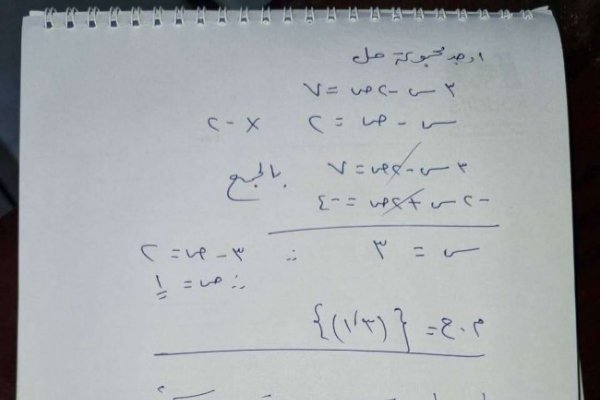 اوجد مجموعة حل
٣ س - ٢ ص = ٧
س - ص = ٢ × - ٢
٣ س - ٢ ص = ٧ بالجمع
- ٢ س + ٢ ص = - ٤
س = ٣ ∴ ٣ - ص = ٢
∴ ص = ١
م . ح = { (٣ ، ١) }